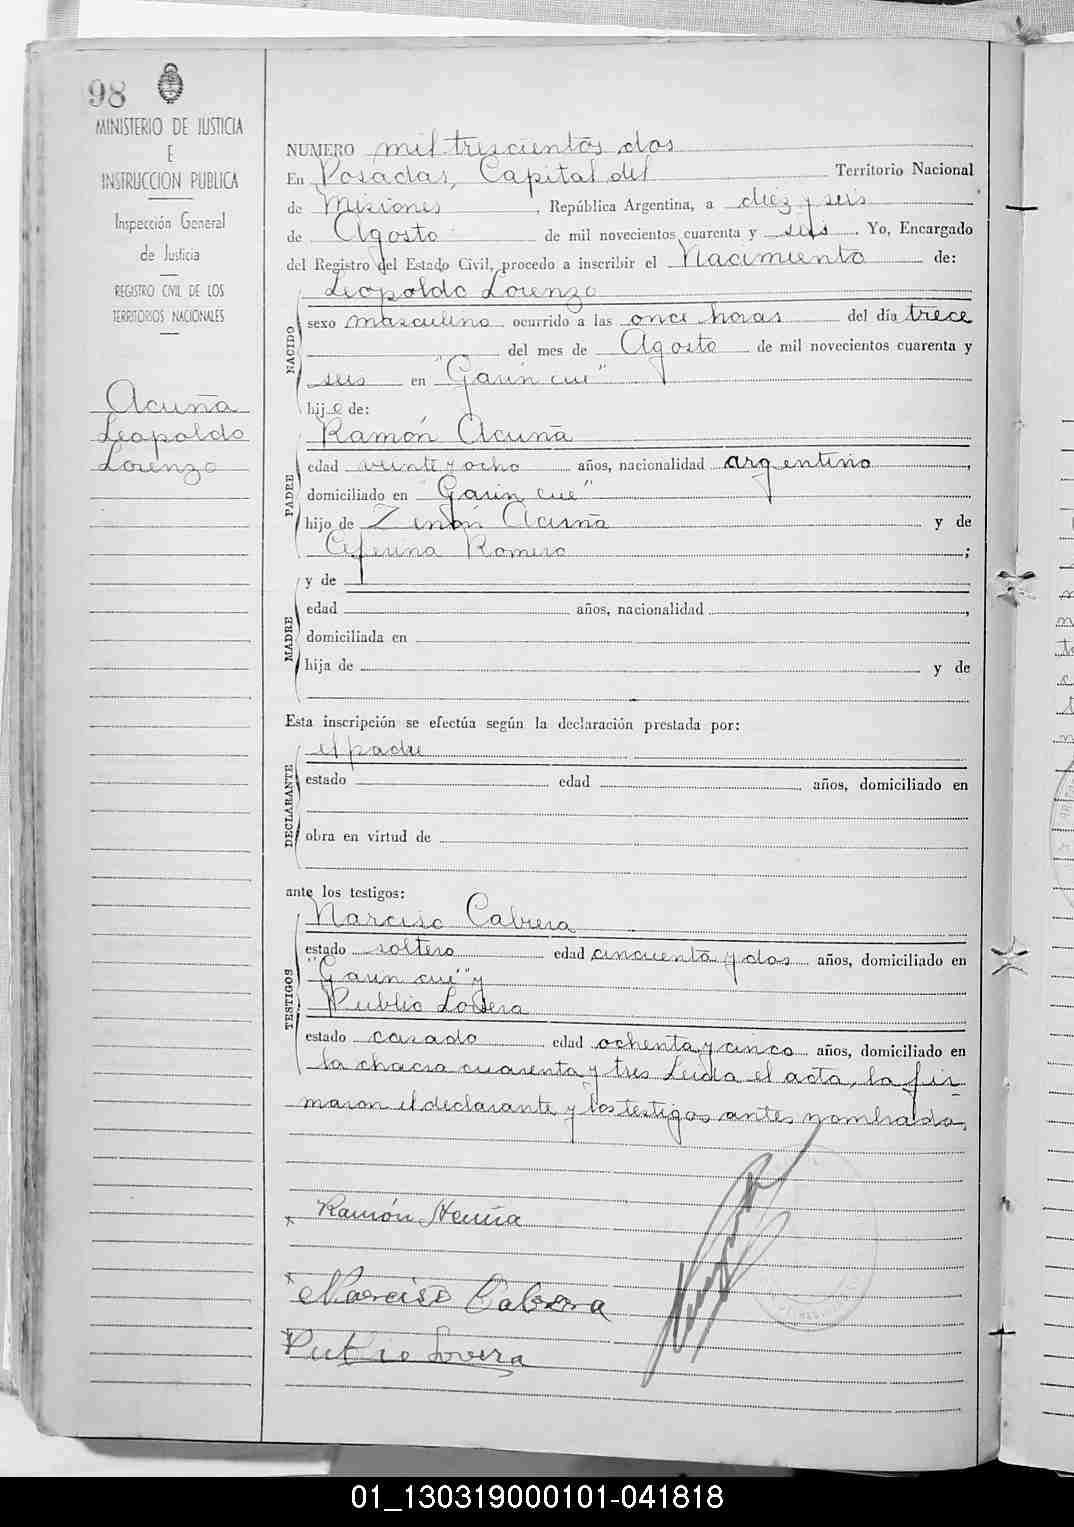 98
MINISTERIO DE JUSTICIA
E
INSTRUCCION PUBLICA
Inspección General
de Justicia
REGISTRO CIVIL DE LOS
TERRITORIOS NACIONALES
Acuña
Leopoldo
Lorenzo
NUMERO mil trescientos dos
En Posadas, Capital del Territorio Nacional
de Misiones, República Argentina, a diez y seis
de Agosto de mil novecientos cuarenta y seis. Yo, Encargado
del Registro del Estado Civil, procedo a inscribir el Nacimiento de:
NACIDO
Leopoldo Lorenzo
sexo masculino ocurrido a las once horas del día trece
del mes de Agosto de mil novecientos cuarenta y
seis en "Garin cué"
hijo de:
PADRE
Ramón Acuña
edad veinte y ocho años, nacionalidad argentino,
domiciliado en "Garin cué"
hijo de Zenón Acuña y de
Romero;
MADRE
y de
edad años, nacionalidad,
domiciliada en
hija de y de
Esta inscripción se efectúa según la declaración prestada por:
DECLARANTE
el padre
estado edad años, domiciliado en
obra en virtud de
ante los testigos:
TESTIGOS
Narciso Cabrera
estado soltero edad cincuenta y dos años, domiciliado en
"Garin cué" y
Publio Lovera
estado casado edad ochenta y cinco años, domiciliado en
la chacra cuarenta y tres Leida el acta, la fir-
maron el declarante y los testigos antes nombrados.
Ramón Acuña
Narciso Cabrera
Publio Lovera
01_130319000101-041818